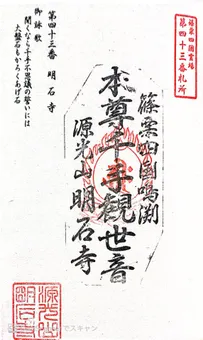 篠栗四國霊場
第四十三番札所
篠栗四国鳴渕
本尊千手観世音
源光山明石寺
第四十三番 明石寺
御詠歌
聞くならく千手不思議の誓いには
大盤石もかろくあげ石
源光山
明石寺
でスキャン